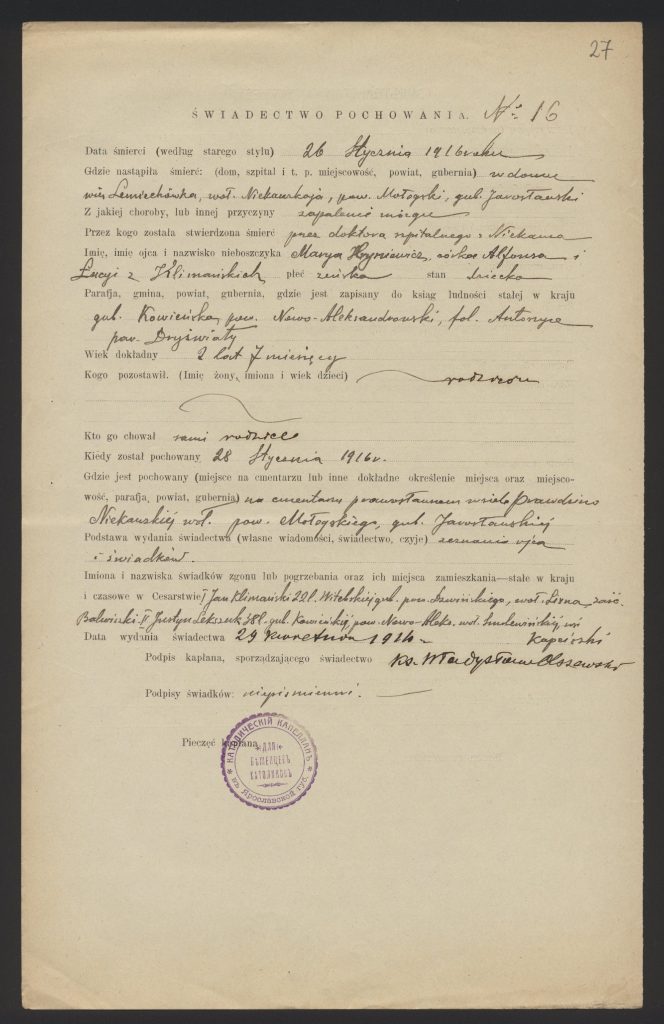 27
ŚWIADECTWO POCHOWANIA. № 16
Data śmierci (według starego stylu) 26 Stycznia 1916 roku
Gdzie nastąpiła śmierć: (dom, szpital i t. p. miejscowość, powiat, gubernia) w domu
wieś Lemiechówka, woł. Niekauskaja, pow. Mołogski, gub. Jarosławski
Z jakiej choroby, lub innej przyczyny zapalenie mózgu
Przez kogo została stwierdzona śmierć przez doktora szpitalnego z Niekauza
Imię, imię ojca i nazwisko nieboszczyka Marya Hryniewicz, córka Alfonsa i
Łucyi z Klimańskich płeć żeńska stan dziecko
Parafja, gmina, powiat, gubernia, gdzie jest zapisany do ksiąg ludności stałej w kraju
gub. Kowieńska, pow. Nowo-Aleksandrowski, fol. Antonye
par. Dryświaty
Wiek dokładny 2 lat 7 miesięcy
Kogo pozostawił. (Imię żony, imiona i wiek dzieci) rodziców
Kto go chował sami rodzice
Kiedy został pochowany 28 Stycznia 1916 r.
Gdzie jest pochowany (miejsce na cmentarzu lub inne dokładne określenie miejsca oraz miejsco-
wość, parafja, powiat, gubernia) na cmentarzu prawosławnem w siele Prawdino
Niekauskiéj woł. pow. Mołogskiego, gub. Jarosławskiéj
Podstawa wydania świadectwa (własne wiadomości, świadectwo, czyje) zeznanie ojca
i świadków.
Imiona i nazwiska świadków zgonu lub pogrzebania oraz ich miejsca zamieszkania—stałe w kraju
i czasowe w Cesarstwie I Jan Klimański 22 l. Witebskiéj gub. pow. woł.
II Justyn 38 l. gub. Kowieńskiéj, pow. Nowo-Aleks. woł.
Data wydania świadectwa 29 kwietnia 1916 r.
Podpis kapłana, sporządzającego świadectwo Ks. Władysław Olszewski
Podpisy świadków: niepiśmienni.
Pieczęć kapłana
КАТОЛИЧЕСКІЙ КАПЕЛЛАНЪ
ДЛЯ
БѢЖЕНЦЕВЪ
КАТОЛИКОВЪ
въ Ярославской губ.